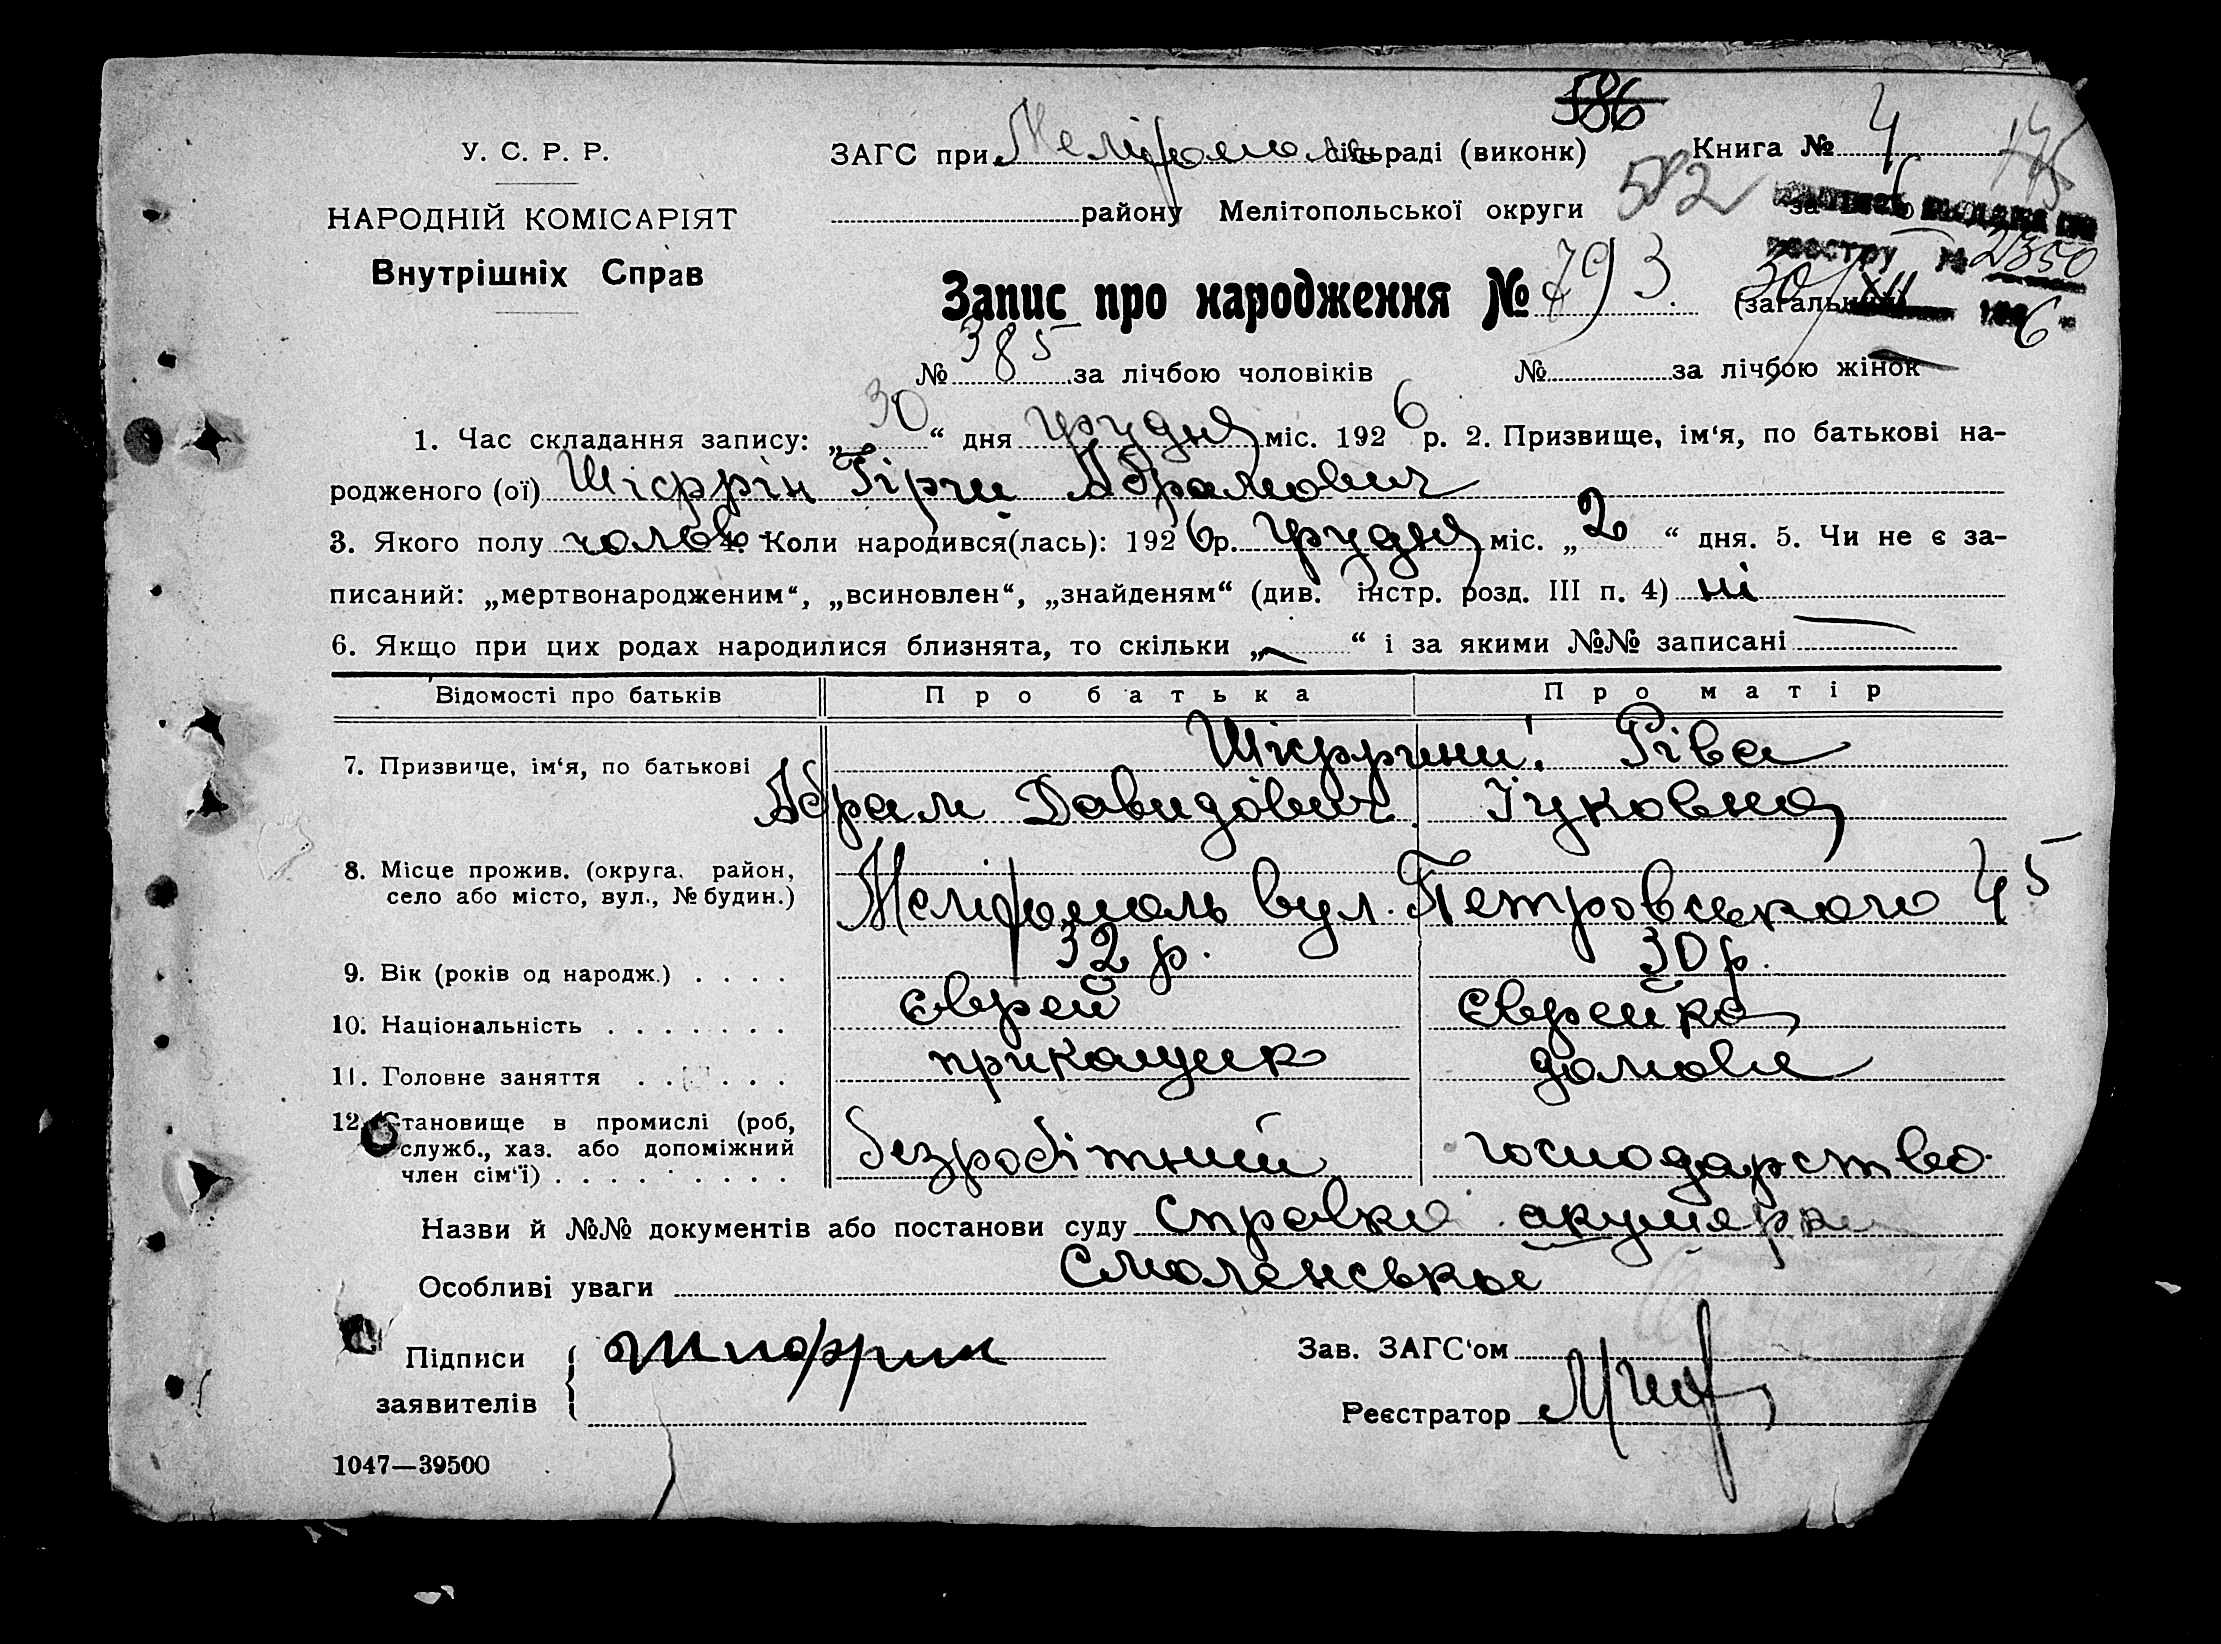 586
У. С. Р. Р.
НАРОДНІЙ КОМІСАРІЯТ
Внутрішніх Справ
ЗАГС при Меліtополь сільраді (виконк) Книга № 4
району Мелітопольської округи 582 за 6
реестру № 2350
Запис про народження № 793. (загальний) 30/XII 1926
№ 385 за лічбою чоловіків № за лічбою жінок
1. Час складання запису: „30“ дня грудня міс. 1926 р. 2. Призвище, ім‘я, по батькові на-
родженого (ої) Шіфрін Гірш Абрамович
3. Якого полу чолов 4. Коли народився(лась): 1926 р. грудня міс. „2“ дня. 5. Чи не є за-
писаний: „мертвонародженим“, „всиновлен“, „знайденям“ (див. інстр. розд. III п. 4) ні
6. Якщо при цих родах народилися близнята, то скільки „—“ і за якими №№ записані —
Відомості про батьків Про батька Про матір
7. Призвище, ім‘я, по батькові Шіфрини: Ріва
Абрам Давидович Іуковна
8. Місце прожив. (округа, район,
село або місто, вул., № будин.) Мелітополь вул. Петровського 45
9. Вік (років од народж.) . . . . 32 р. 30 р.
10. Національність . . . . . . . Єврей Єврейка
11. Головне заняття . . . . . . прикащик домове
12. Становище в промислі (роб,
служб., хаз. або допоміжний
член сім‘ї) . . . . . . . . безробітний господарство
Назви й №№ документів або постанови суду справка акушерки
Особливі уваги Смоленської
Підписи
заявителів Шифрин
Зав. ЗАГС‘ом
Реєстратор
1047—39500